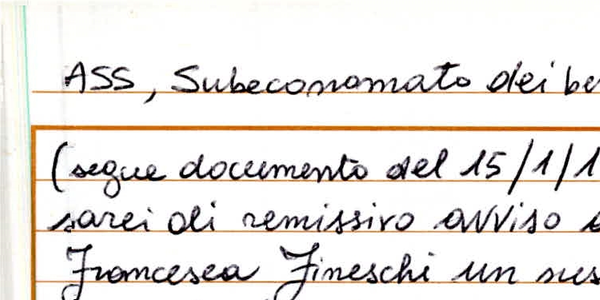 ASS, Subeconomato dei be
(segue documento del 15/1/1
sarei di remissivo avviso
Francesca Fineschi un sus